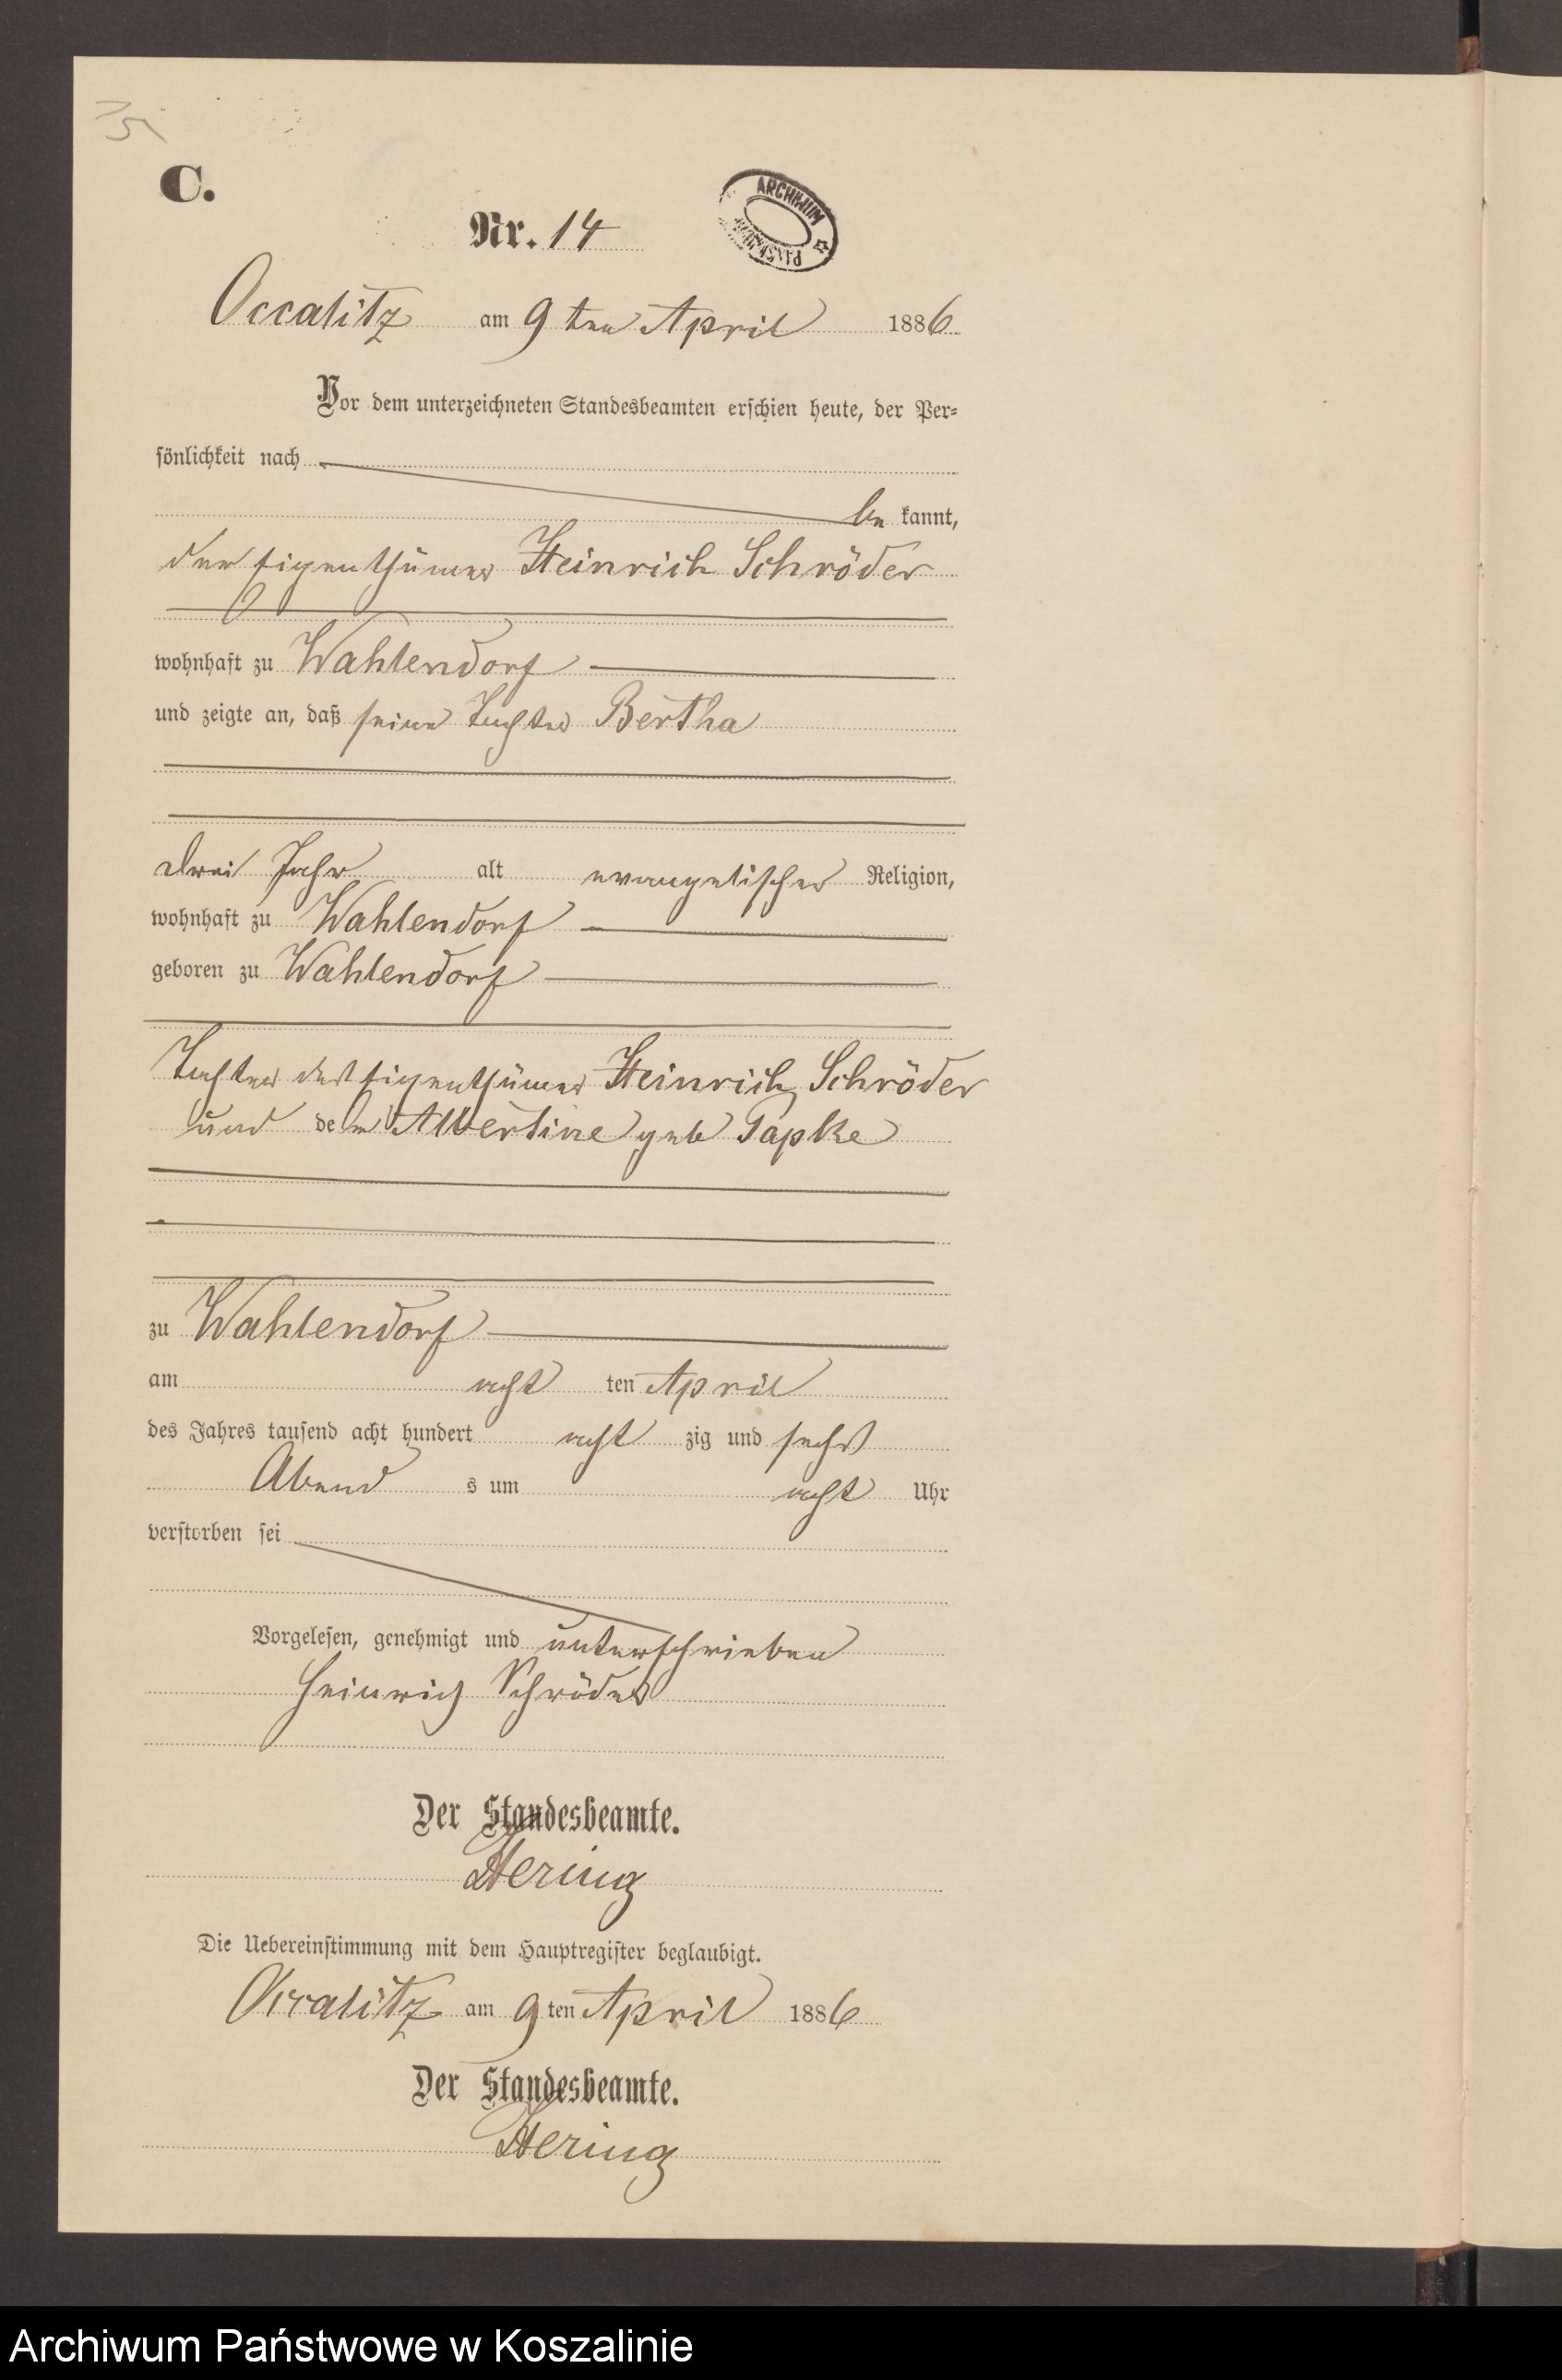 C.
Nr. 14
ARCHIWUM
Occalitz am 9 ten April 1886
Vor dem unterzeichneten Standesbeamten erschien heute, der Per=
sönlichkeit nach
be kannt,
der Eigenthümer Heinrich Schröder
wohnhaft zu Wahlendorf
und zeigte an, daß seine Tochter Bertha
drei Jahr alt evangelischer Religion,
wohnhaft zu Wahlendorf
geboren zu Wahlendorf
Tochter des Eigenthümer Heinrich Schröder
und der Albertine geb Papke
zu Wahlendorf
am acht ten April
des Jahres tausend acht hundert acht zig und sechs
Abend s um acht Uhr
verstorben sei
Vorgelesen, genehmigt und unterschrieben
Heinrich Schröder
Der Standesbeamte.
Hering
Die Uebereinstimmung mit dem Hauptregister beglaubigt.
Occalitz am 9 ten April 1886
Der Standesbeamte.
Hering
Archiwum Państwowe w Koszalinie